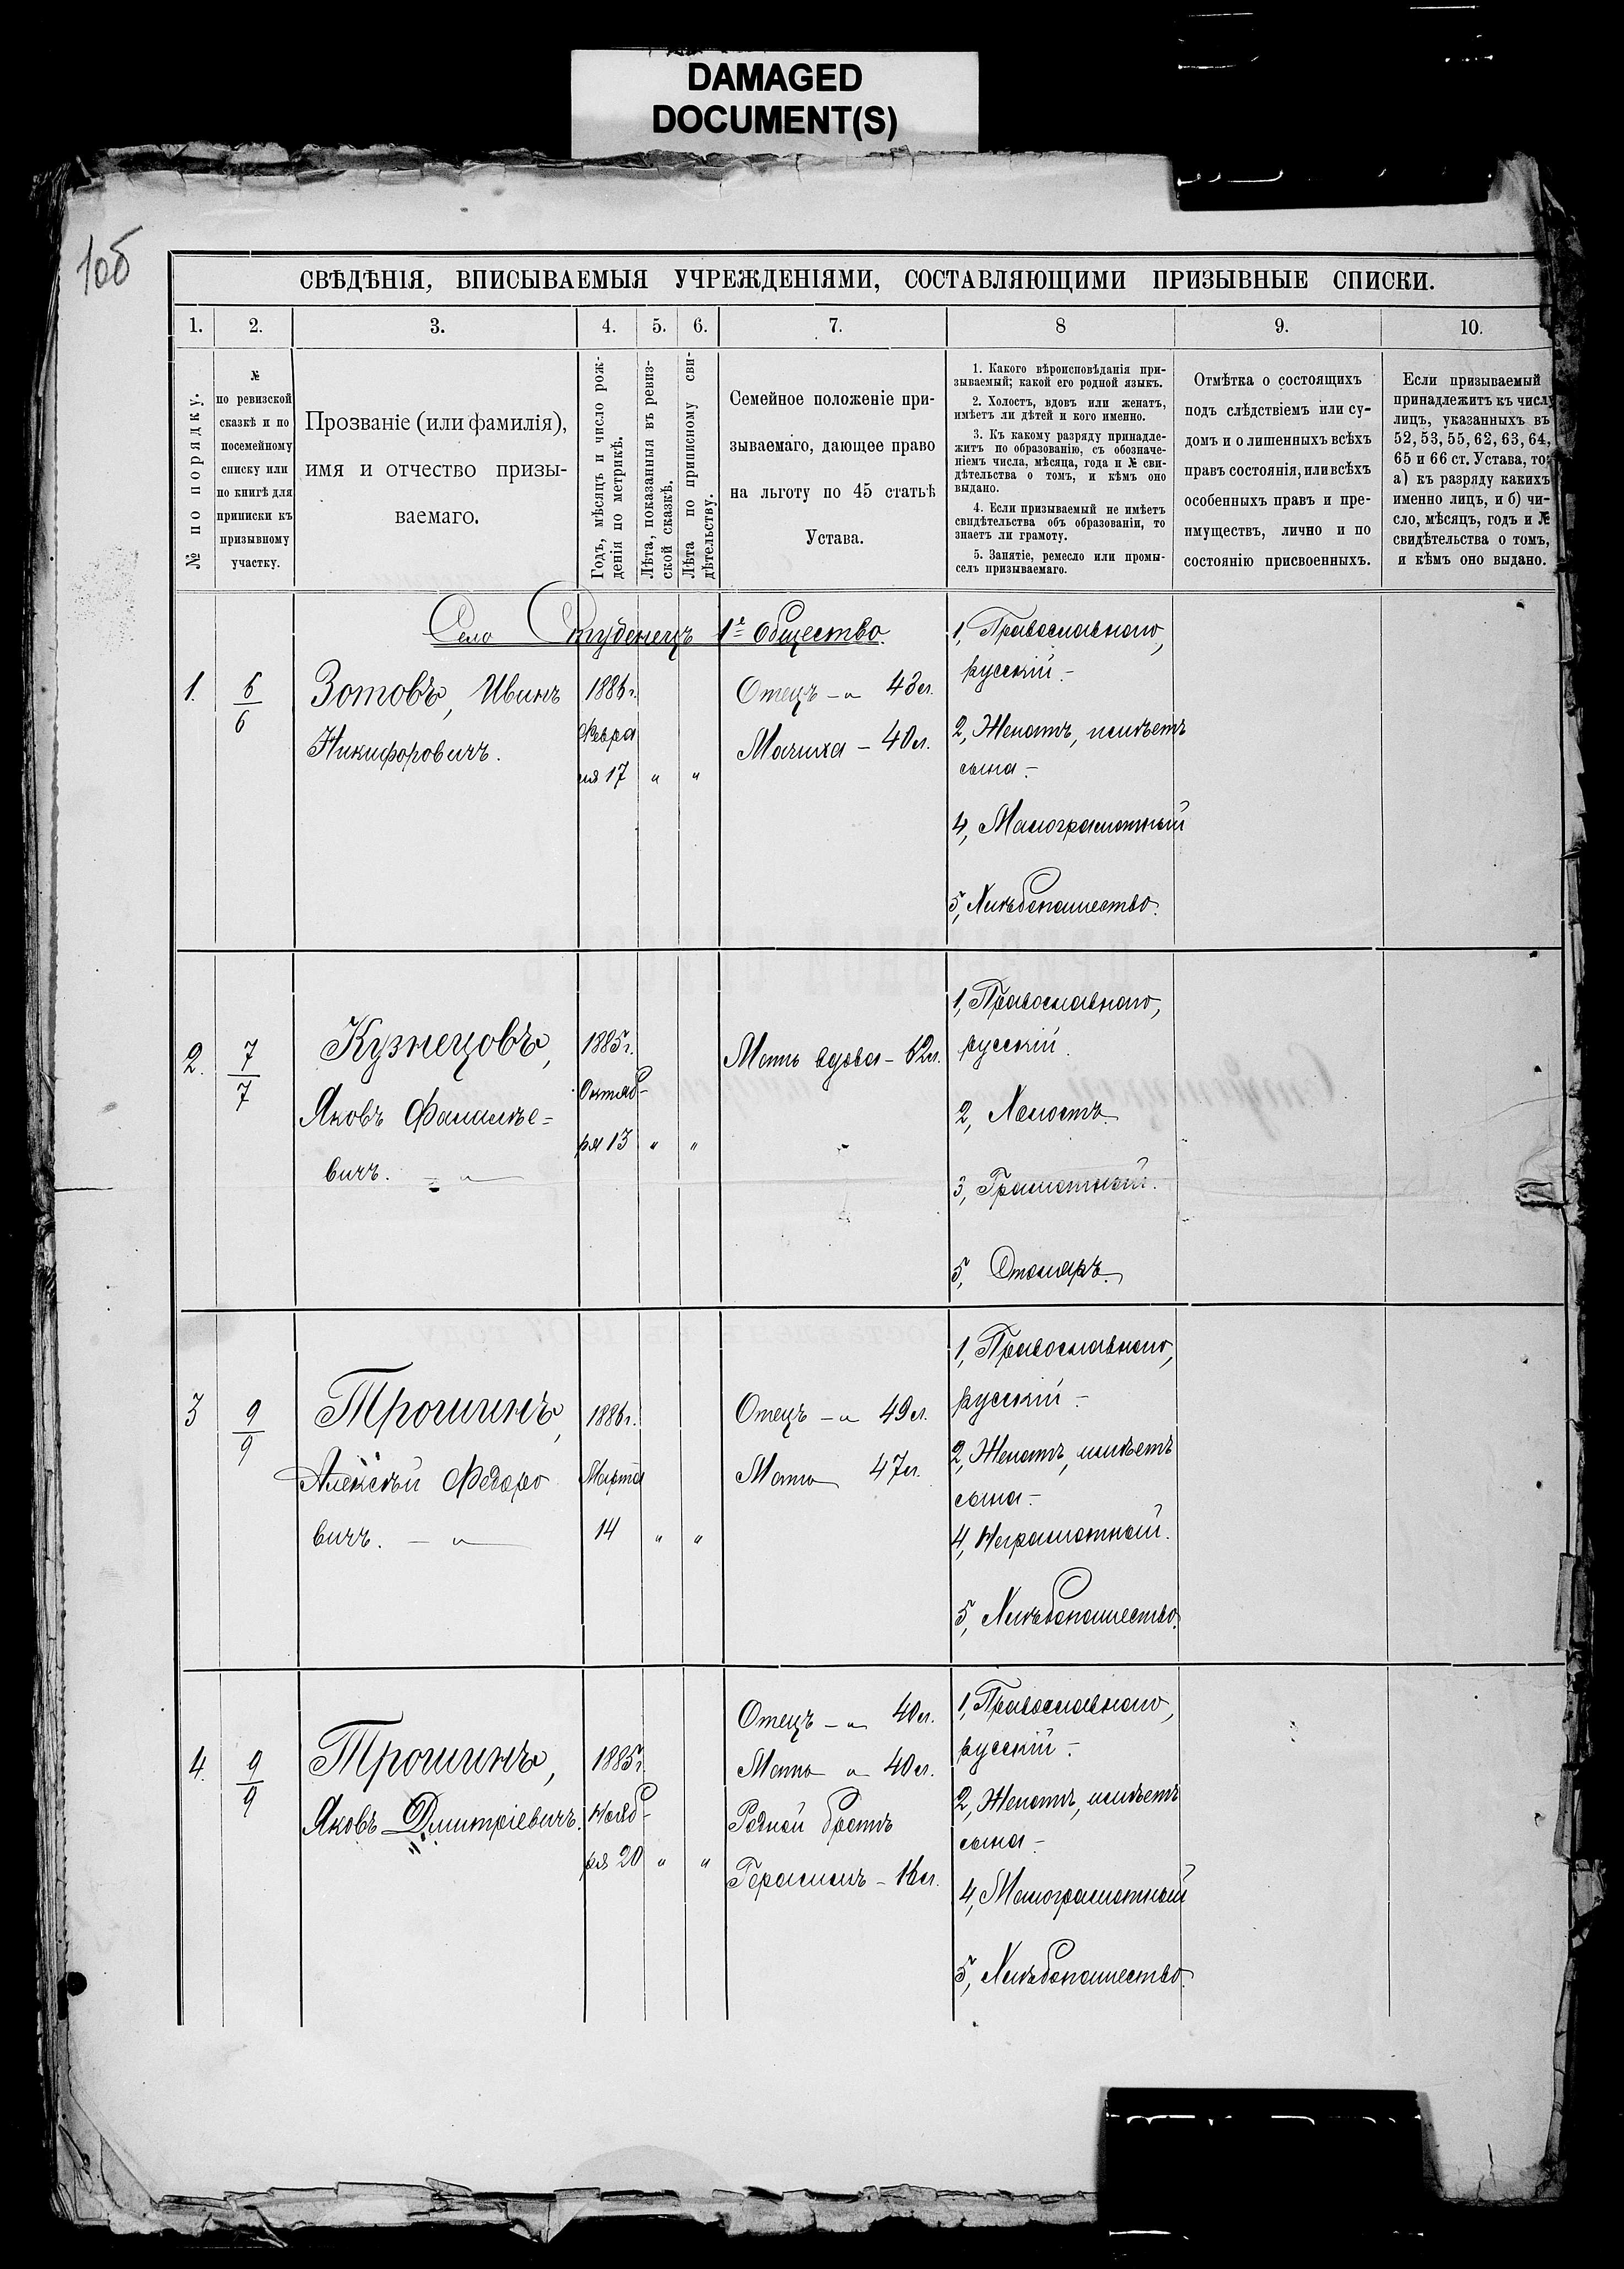 DAMAGED
DOCUMENT(S)
106
СВѢДѢНІЯ, ВПИСЫВАЕМЫЯ УЧРЕЖДЕНІЯМИ, СОСТАВЛЯЮЩИМИ ПРИЗЫВНЫЕ СПИСКИ.
1. 2. 3. 4. 5. 6. 7. 8 9. 10.
№ по порядку.
№
по ревизской
сказкѣ и по
посемейному
списку или
по книгѣ для
приписки къ
призывному
участку.
Прозваніе (или фамилія),
имя и отчество призы-
ваемаго.
Годъ, мѣсяцъ и число рож-
денія по метрикѣ.
Лѣта, показанныя въ ревиз-
ской сказкѣ.
Лѣта по приписному сви-
дѣтельству.
Семейное положеніе при-
зываемаго, дающее право
на льготу по 45 статьѣ
Устава.
1. Какого вѣроисповѣданія при-
зываемый; какой его родной языкъ.
2. Холостъ, вдовъ или женатъ,
имѣетъ ли дѣтей и кого именно.
3. Къ какому разряду принадле-
житъ по образованію, съ обозначе-
ніемъ числа, мѣсяца, года и № сви-
дѣтельства о томъ, и кѣмъ оно
выдано.
4. Если призываемый не имѣетъ
свидѣтельства объ образованіи, то
знаетъ ли грамоту.
5. Занятіе, ремесло или промы-
селъ призываемаго.
Отмѣтка о состоящихъ
подъ слѣдствіемъ или су-
домъ и о лишенныхъ всѣхъ
правъ состоянія, или всѣхъ
особенныхъ правъ и пре-
имуществъ, лично и по
состоянію присвоенныхъ.
Если призываемый
принадлежитъ къ числу
лицъ, указанныхъ въ
52, 53, 55, 62, 63, 64,
65 и 66 ст. Устава, то:
а) къ разряду какихъ
именно лицъ, и б) чи-
сло, мѣсяцъ, годъ и №
свидѣтельства о томъ,
и кѣмъ оно выдано.
Село Студенецъ 1е общество
1.
6
6
Зотовъ, Иванъ
Никифоровичъ.
1886 г.
Февра
ля 17 " "
Отецъ - " 43 л.
Мачиха - 40 л.
1, Православнаго,
русскій -
2, Женатъ, имѣетъ
сына -
4, Малограмотный
5, Хлѣбопашество.
2.
7
7
Кузнецовъ,
Яковъ Фалалѣе=
вичъ. - "
1885 г.
Октяб-
ря 13 " "
Мать вдова - 62 л.
1, Православнаго,
русскій
2, Холостъ.
3, Грамотный.
5, Столяръ.
3
9
9
Трошинъ,
Алексѣй Ѳедоро
вичъ. - "
1886 г.
Марта
14 " "
Отецъ - " 49 л.
Мать 47 л.
1, Православнаго,
русскій -
2, Женатъ, имѣетъ
сына -
4, Неграмотный.
5, Хлѣбопашество.
4.
9
9
Трошинъ,
Яковъ Дмитріевичъ.
1885 г.
Нояб-
ря 20 " "
Отецъ - " 40 л.
Мать " 40 л.
Родной братъ
Герасимъ - 16 л.
1, Православнаго,
русскій -
2, Женатъ, имѣетъ
сына -
4, Малограмотный
5, Хлѣбопашество.